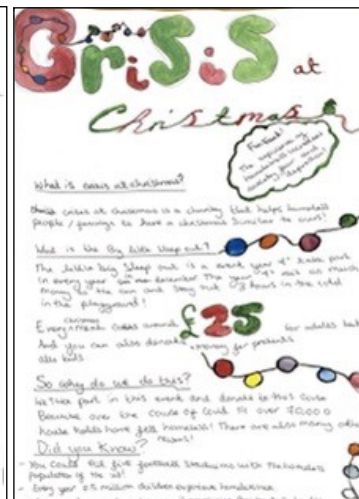 Crisis at
Christmas
Fun Fact!
The experience of
homelessness increases
anxiety, fear and
depression!
What is crisis at christmas?
crisis at christmas is a charity that helps homeless
people / families to have a christmas similar to ours!
What is the Big little Sleep out?
The little big Sleep out is a event year 4 take part
in every year december The year 4 as much
money as the can and stay out 3 hours in the cold
in the playground!
Every christmas around £25 for adults
And you can also donate money for presents
kids
So why do we do this?
We take part in this event and donate to this cause
Because over the course of Covid 19 over 70,000
house holds have homeless! There are also many other
reasons!
Did you know?
- You could fill five football stadiums with the homeless
population of the
- Every year 0.5 million children experience homelessness